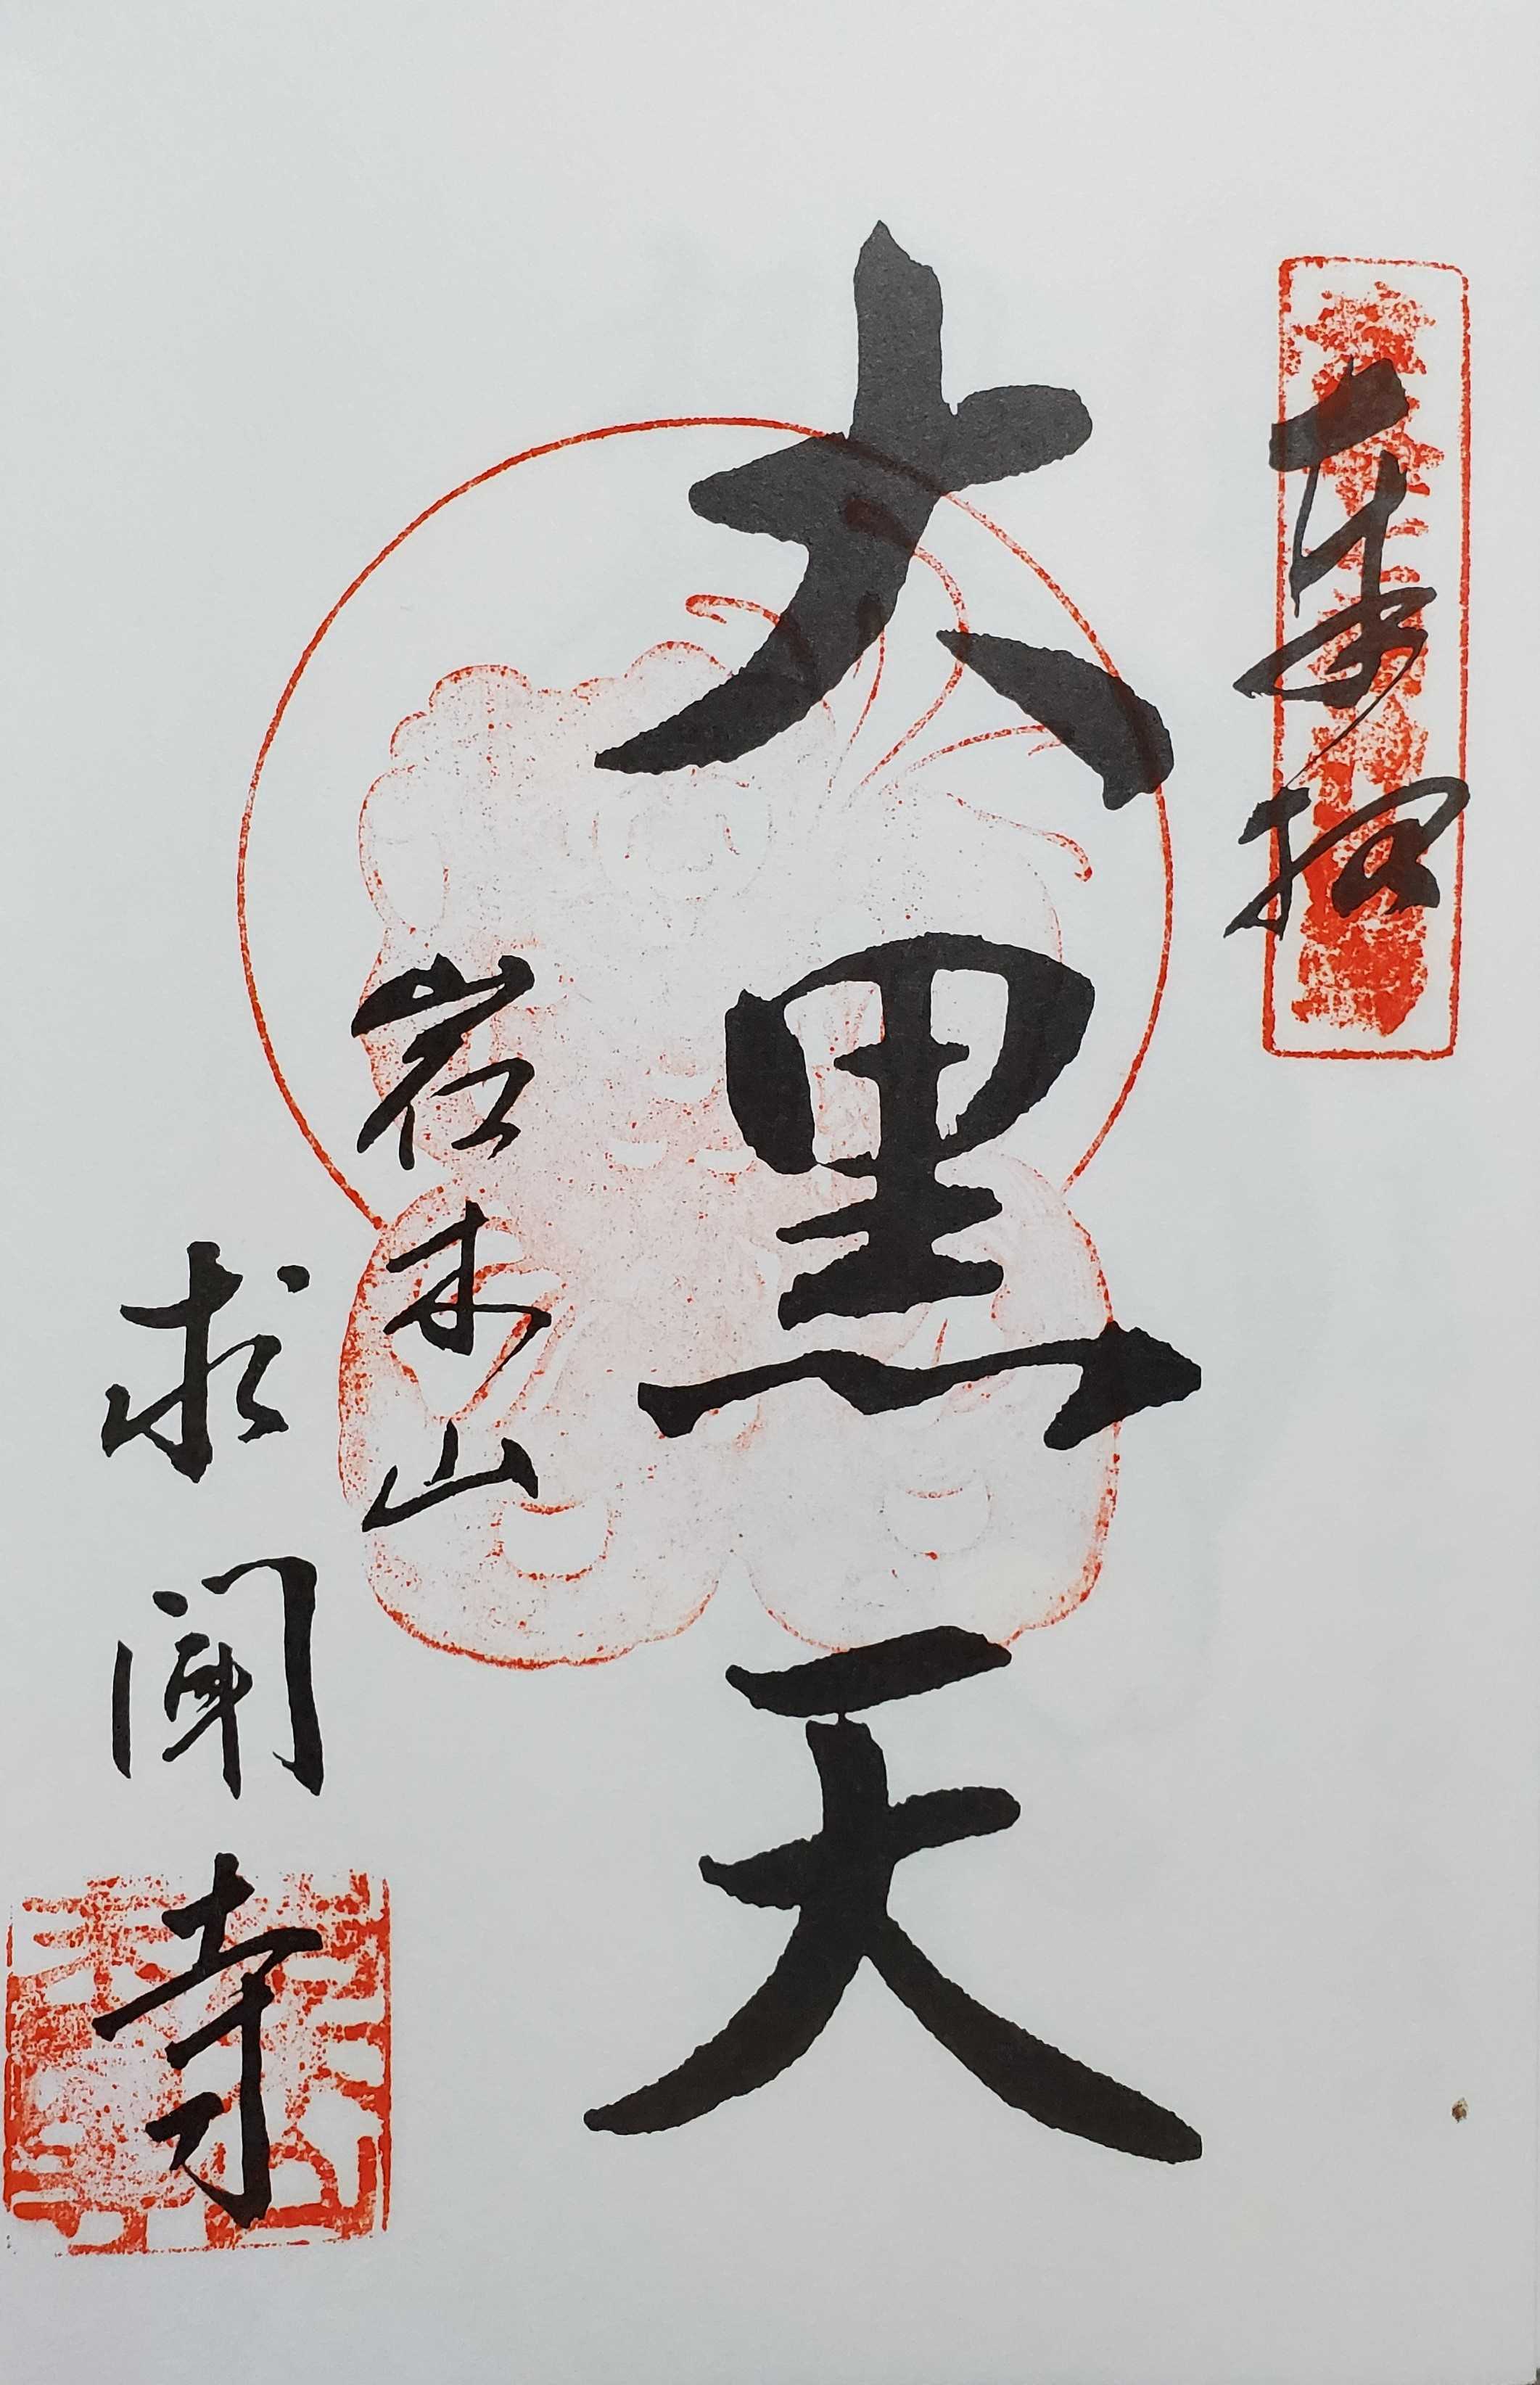 奉拝
大黒天
岩木山
求聞寺